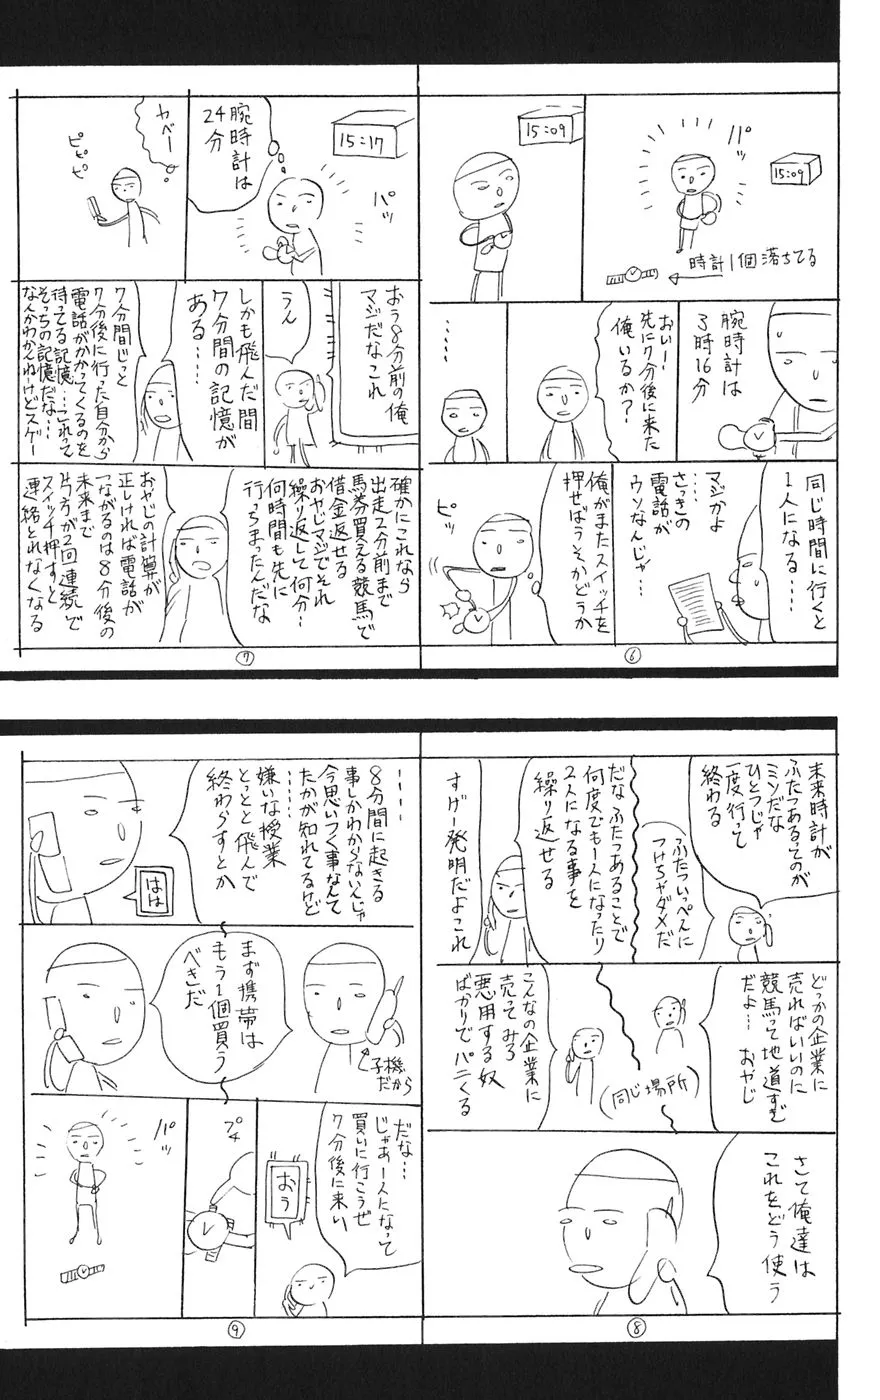 パッ
15:09
時計1個落ちてる
15:09
腕時計は
3時16分
おい…
先に7分後に来た
俺いるか?
……
同じ時間に行くと
1人になる…
マジかよ
……
さっきの
電話が
ウソなんじゃ…
俺がまたスイッチを
押せばうそかどうか
ピッ
⑥
15:17
パッ
腕時計は
24分
ヤベー
ピピピ
おう8分前の俺
マジだなこれ
うん
しかも飛んだ間
7分間の記憶が
ある……
7分間じっと
7分後に行った自分から
電話がかかってくるのを
待ってる記憶…これって
そっちの記憶だな…
なんかわかんねーけどスゲー
確かにこれなら
出走2分前まで
馬券買える競馬で
借金返せる
おやじマジでそれ
繰り返して何分…
何時間も先に
行っちまったんだな
おやじの計算が
正しければ電話が
つながるのは8分後の
未来まで
片方が2回連続で
スイッチ押すと
連絡とれなくなる
⑦
未来時計が
ふたつあるってのが
ミソだな
ひとつじゃ
一度行って
終わる
ふたついっぺんに
つけちゃダメだ
だな ふたつあることで
何度でも一人になったり
2人になる事を
繰り返せる
すげー発明だよこれ
どっかの企業に
売ればいいのに
競馬って地道すぎ
だよ… おやじ
(同じ場所)
こんなの企業に
売ってみろ
悪用する奴
ばかりでパニくる
さて俺達は
これをどう使う
⑧
……
8分間に起きる
事しかわからないんじゃ
今思いつく事なんて
たかが知れてるけど
……
嫌いな授業
とっとと飛んで
終わらすとか
はは
まず携帯は
もう1個買う
べきだ
子機
だから
だな…
じゃあ一人になって
買いに行こうぜ
7分後に来い
おう
プチ
パッ
⑨